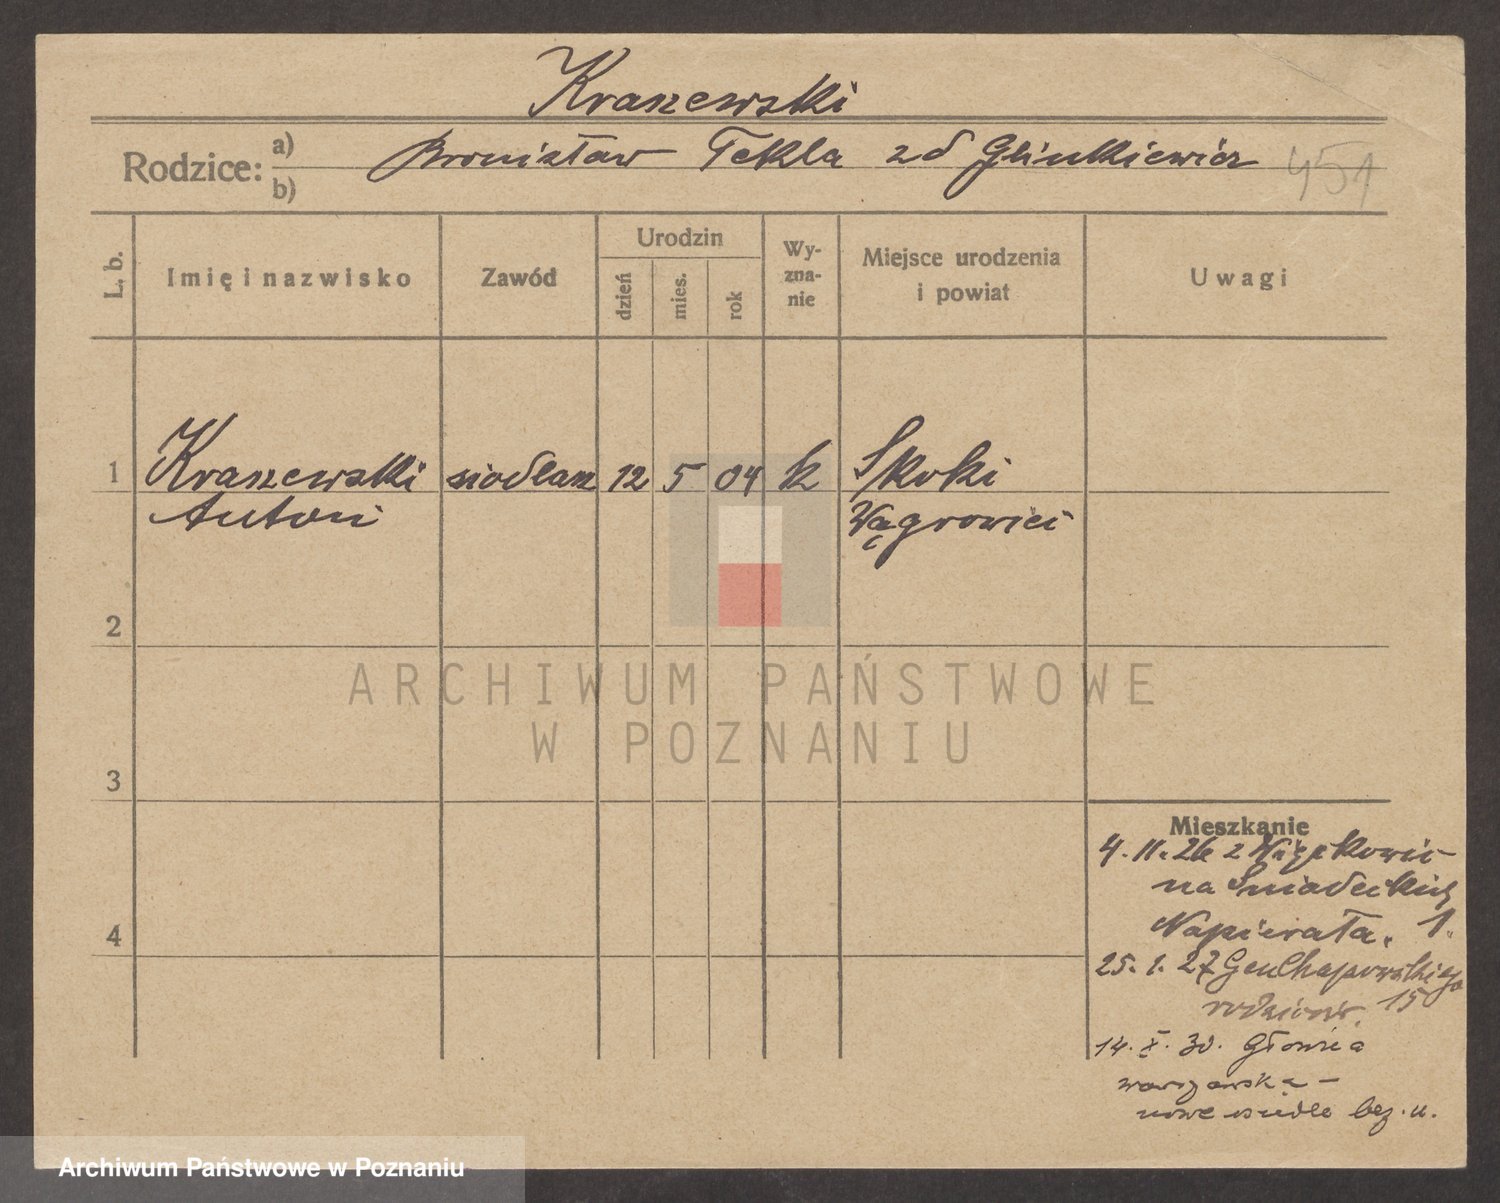 Kraszewski
Rodzice: a) b)
Bronisław Tekla zd Glinkiewicz
451
L. b.
Imię i nazwisko
Zawód
Urodzin
dzień
mies.
rok
Wy-
zna-
nie
Miejsce urodzenia
i powiat
Uwagi
1 Kraszewski siodlarz 12 5 04 k Skoki
Antoni Wągrowiec
2
ARCHIWUM PAŃSTWOWE
W POZNANIU
3
Mieszkanie
4. 11. 26 z
na Śniadeckich
Napierała. 1.
4
25. 1. 27 Gen Chłapowskiego
rodziców. 15
14. X. 30. Główna
warszawska -
nowe osiedle bez. n.
Archiwum Państwowe w Poznaniu